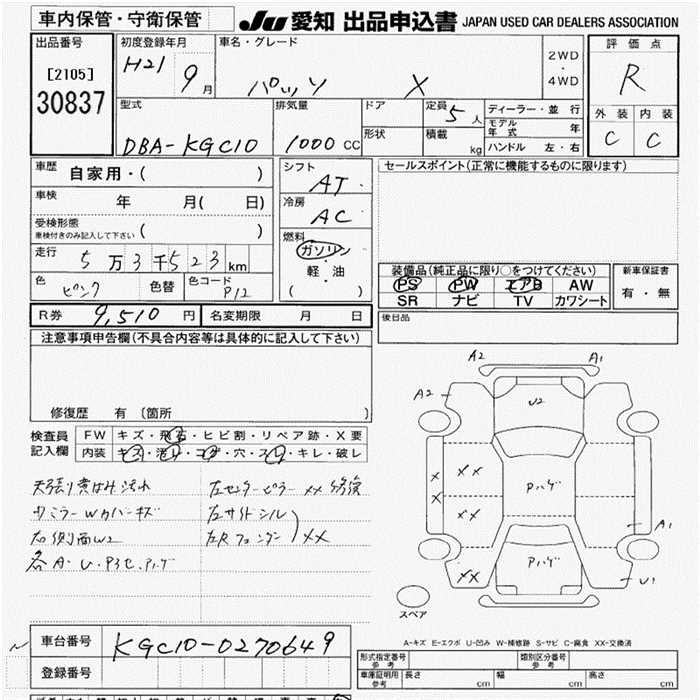 車内保管・守衛保管
JU 愛知 出品申込書 JAPAN USED CAR DEALERS ASSOCIATION
出品番号
[2105]
30837
初度登録年月
H21 9月
車名・グレード
パッソ X
2WD
・
4WD
評価点
R
外装 内装
C C
型式
DBA-KGC10
排気量
1000 CC
ドア
形状
定員 5 人
積載 kg
ディーラー・並行
モデル年式 年
ハンドル 左・右
車歴
自家用・( )
車検 年 月( 日)
受検形態
車検付きのみ記入して下さい ( )
走行 5万3千523km
色 ピンク 色替 色コード P12
シフト
AT
冷房
AC
燃料
ガソリン
・
軽・油
( )
セールスポイント(正常に機能するものに限ります)
装備品(純正品に限り○をつけてください)
PS PW エアB AW
SR ナビ TV カワシート
新車保証書
有・無
R券 9,510 円 名変期限 月 日
後日品
注意事項申告欄(不具合内容等は具体的に記入して下さい)
修復歴 有 〔箇所 〕
検査員
記入欄
FW キズ・飛石・ヒビ割・リペア跡・X要
内装 キズ・汚れ・コゲ・穴・スレ・キレ・破レ
天張り黄ばみ汚れ
左センターピラー XX 修復
サミラーWカバーキズ
左サイドシル
右側面W2
左Rフェンダー XX
各A・U・Pスセ、Pハゲ
A2 A1
A2
U2
X
X
XX
XX
Pハゲ
A1
XX
Pハゲ
U1
スペア
A-キズ E-エクボ U-凹み W-補修跡 S-サビ C-腐食 XX-交換済
車台番号 KGC10-0270649
登録番号
形式指定番号
参考
類別区分番号
参考
車庫証明用
参考
長さ cm 幅 cm 高さ cm